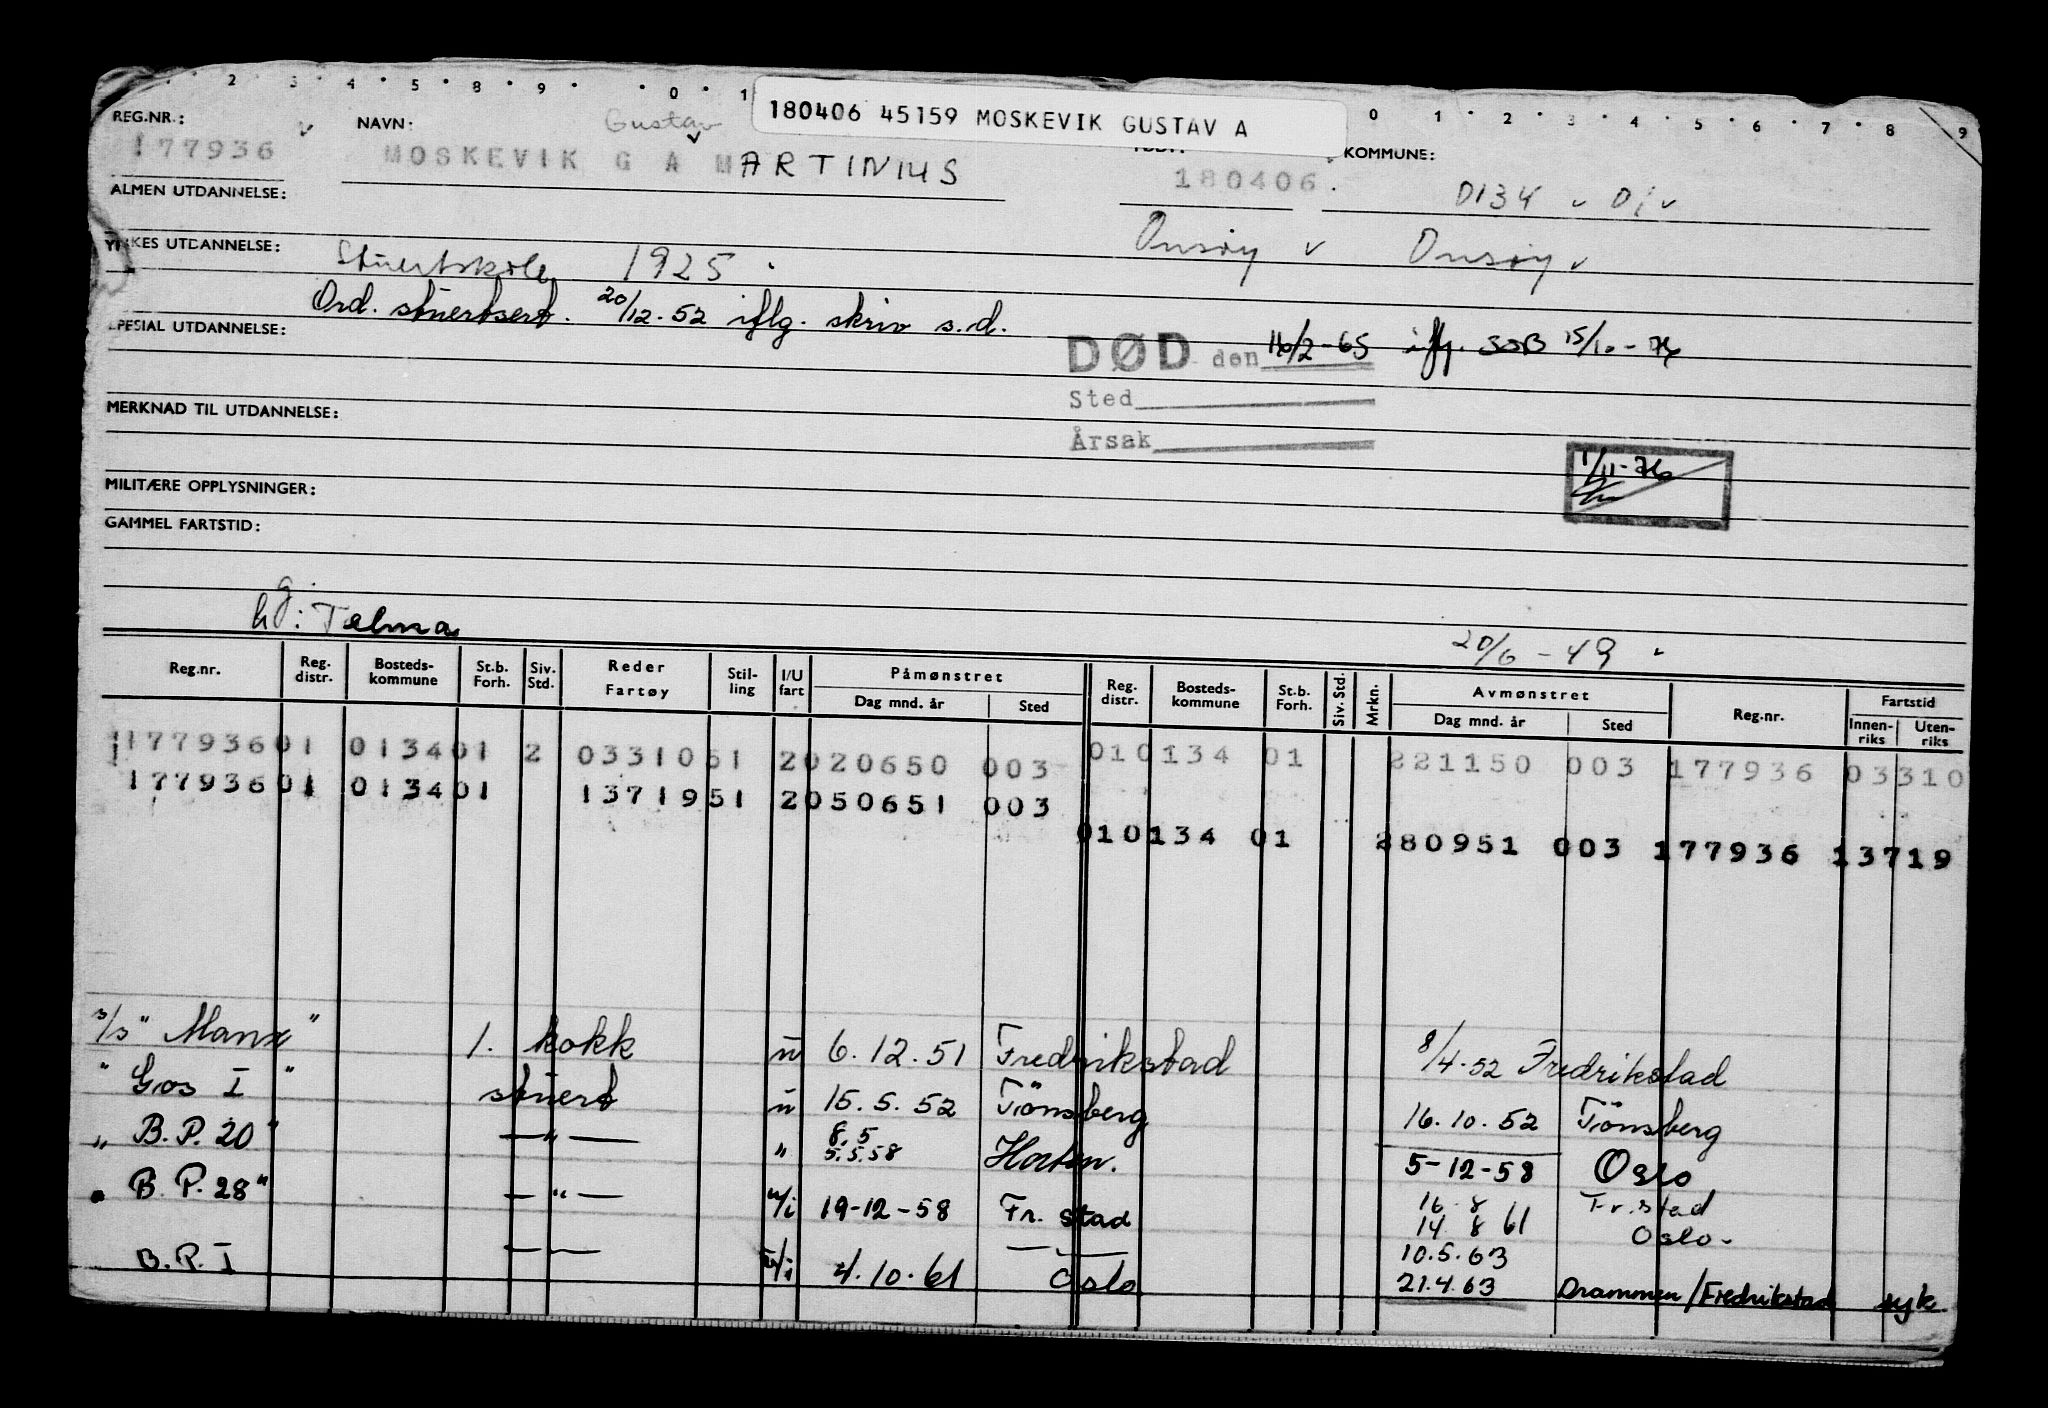 2 3 4 5 8 9 0 1 0 1 2 3 4 5 6 7 8 9
180406 45159 MOSKEVIK GUSTAV A
REG.NR.: NAVN: Gustav KOMMUNE:
177936 MOSKEVIK G A MARTINIUS 180406. 0134 01
ALMEN UTDANNELSE:
Onsøy Onsøy
YRKES UTDANNELSE: Stuertskole 1925.
Ord. stuertsert. 20/12-52 iflg. skriv s.d.
SPESIAL UTDANNELSE:
DØD den 16/2-65 iflg. SSB 15/10-76
Sted
Årsak
MERKNAD TIL UTDANNELSE:
1/11-76
MILITÆRE OPPLYSNINGER:
GAMMEL FARTSTID:
hg: Telma
20/6-49
Reg.nr. Reg. distr. Bosteds-kommune St.b. Forh. Siv. Std. Reder Fartøy Stil-ling I/U fart Påmønstret Dag mnd. år Sted Reg. distr. Bosteds-kommune St.b. Forh. Siv. Std. Mrkn. Avmønstret Dag mnd. år Sted Reg.nr. Fartstid Innen-riks Uten-riks
177936 01 0134 01 2 03310 51 2 020650 003 01 0134 01 221150 003 177936 03310
177936 01 0134 01 13719 51 2 050651 003
01 0134 01 280951 003 177936 13719
s/s "Manx" 1. kokk u 6.12.51 Fredrikstad 8/4-52 Fredrikstad
" Gos I " stuert u 15.5.52 Tönsberg 16.10.52 Tönsberg
" B.P. 20" —"— " 8.5 5.5.58 Horten. 5-12-58 Oslo
" B.P. 28" —"— u/i 19-12-58 Fr. stad 16 8 Fr.stad
14 8 61 Oslo-
10.5.63
B.P. I —"— u/i 4.10.61 Oslo 21.4.63 Drammen/Fredrikstad syk